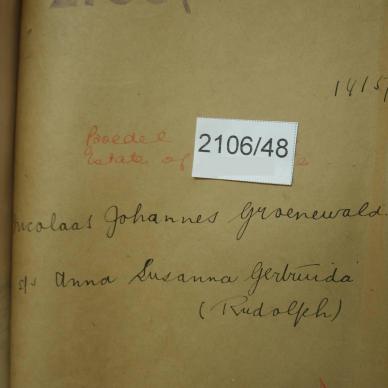 1415
Boedel
2106/48
Estate of
Nicolaas Johannes Groenewald
s/s Anna Susanna Gertruida
(Rudolph)